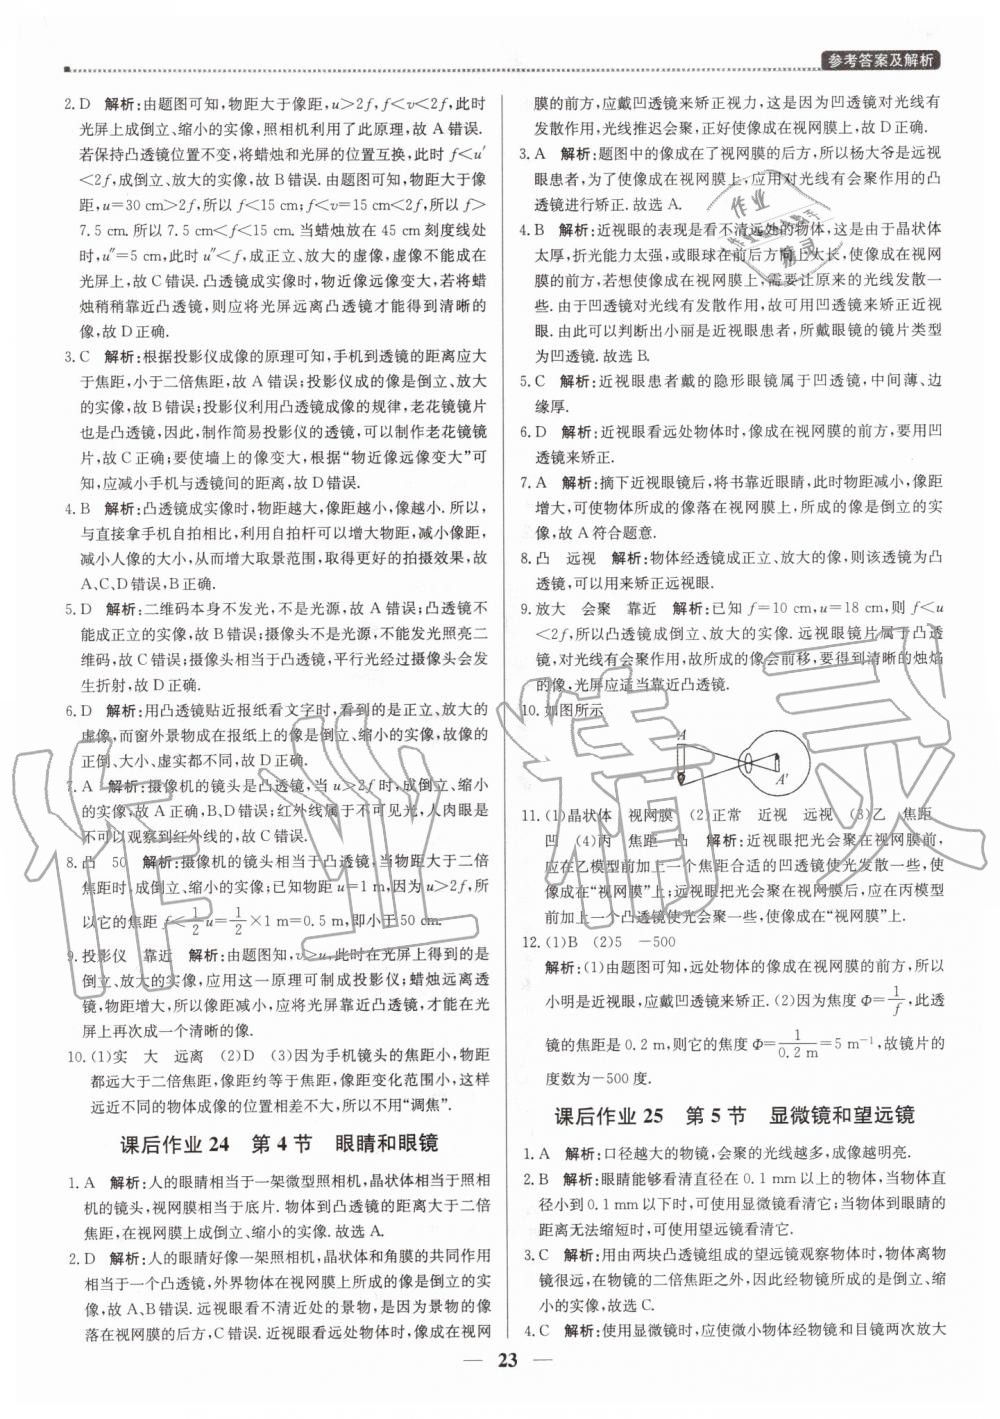 参考答案及解析
2. D 解析:由题图可知,物距大于像距,u>2f,f<v<2f,此时
光屏上成倒立、缩小的实像,照相机利用了此原理,故 A 错误.
若保持凸透镜位置不变,将蜡烛和光屏的位置互换,此时 f<u′
<2f,成倒立、放大的实像,故 B 错误. 由题图可知,物距大于像
距,u=30 cm>2f,所以 f<15 cm;f<v=15 cm<2f,所以 f>
7.5 cm. 所以 7.5 cm<f<15 cm. 当蜡烛放在 45 cm 刻度线处
时,u″=5 cm,此时 u″<f,成正立、放大的虚像,虚像不能成在
光屏上,故 C 错误. 凸透镜成实像时,物近像远像变大,若将蜡
烛稍稍靠近凸透镜,则应将光屏远离凸透镜才能得到清晰的
像,故 D 正确.
3. C 解析:根据投影仪成像的原理可知,手机到透镜的距离应大
于焦距,小于二倍焦距,故 A 错误;投影仪成的像是倒立、放大
的实像,故 B 错误;投影仪利用凸透镜成像的规律,老花镜镜片
也是凸透镜,因此,制作简易投影仪的透镜,可以制作老花镜镜
片,故 C 正确;要使墙上的像变大,根据“物近像远像变大”可
知,应减小手机与透镜间的距离,故 D 错误.
4. B 解析:凸透镜成实像时,物距越大,像距越小,像越小. 所以,
与直接拿手机自拍相比,利用自拍杆可以增大物距,减小像距,
减小人像的大小,从而增大取景范围,取得更好的拍摄效果,故
A、C、D 错误,B 正确.
5. D 解析:二维码本身不发光,不是光源,故 A 错误;凸透镜不
能成正立的实像,故 B 错误;摄像头不是光源,不能发光照亮二
维码,故 C 错误;摄像头相当于凸透镜,平行光经过摄像头会发
生折射,故 D 正确.
6. D 解析:用凸透镜贴近报纸看文字时,看到的是正立、放大的
虚像,而窗外景物成在报纸上的像是倒立、缩小的实像,故像的
正倒、大小、虚实都不同. 故 D 正确.
7. A 解析:摄像机的镜头是凸透镜,当 u>2f 时,成倒立、缩小
的实像,故 A 正确,B、D 错误;红外线属于不可见光,人肉眼是
不可以观察到红外线的,故 C 错误.
8. 凸 50 解析:摄像机的镜头相当于凸透镜,当物距大于二倍
焦距时,成倒立、缩小的实像;已知物距 u=1 m,因为 u>2f,所
以它的焦距 f<1/2 u=1/2×1 m=0.5 m,即小于 50 cm.
9. 投影仪 靠近 解析:由题图知,v>u,此时在光屏上得到的是
倒立、放大的实像,应用这一原理可制成投影仪;蜡烛远离透
镜,物距增大,所以像距减小,应将光屏靠近凸透镜,才能在光
屏上再次成一个清晰的像.
10. (1)实 大 远离 (2)D (3)因为手机镜头的焦距小,物距
都远大于二倍焦距,像距约等于焦距,像距变化范围小,这样
远近不同的物体成像的位置相差不大,所以不用“调焦”.
课后作业 24 第 4 节 眼睛和眼镜
1. A 解析:人的眼睛相当于一架微型照相机,晶状体相当于相机
的镜头,视网膜相当于底片. 物体到凸透镜的距离大于二倍焦
距,在视网膜上成倒立、缩小的实像. 故选 A.
2. D 解析:人的眼睛好像一架照相机,晶状体和角膜的共同作用
相当于一个凸透镜,外界物体在视网膜上所成的像是倒立的实
像,故 A、B 错误. 远视眼看不清近处的景物,是因为景物的像
落在视网膜的后方,C 错误. 近视眼看远处物体时,像成在视网
膜的前方,应戴凹透镜来矫正视力,这是因为凹透镜对光线有
发散作用,光线推迟会聚,正好使像成在视网膜上,故 D 正确.
3. A 解析:题图中的像成在了视网膜的后方,所以杨大爷是远视
眼患者,为了使像成在视网膜上,应用对光线有会聚作用的凸
透镜进行矫正. 故选 A.
4. B 解析:近视眼的表现是看不清远处的物体,这是由于晶状体
太厚,折光能力太强,或眼球在前后方向上太长,使像成在视网
膜的前方,若想使像成在视网膜上,需要让原来的光线发散一
些. 由于凹透镜对光线有发散作用,故可用凹透镜来矫正近视
眼. 由此可以判断出小丽是近视眼患者,所戴眼镜的镜片类型
为凹透镜. 故选 B.
5. C 解析:近视眼患者戴的隐形眼镜属于凹透镜,中间薄、边
缘厚.
6. D 解析:近视眼看远处物体时,像成在视网膜的前方,要用凹
透镜来矫正.
7. A 解析:摘下近视眼镜后,将书靠近眼睛,此时物距减小,像距
增大,可使物体所成的像落在视网膜上,所成的像是倒立的实
像,故 A 符合题意.
8. 凸 远视 解析:物体经透镜成正立、放大的像,则该透镜为凸
透镜,可以用来矫正远视眼.
9. 放大 会聚 靠近 解析:已知 f=10 cm,u=18 cm,则 f<u
<2f,所以凸透镜成倒立、放大的实像. 远视眼镜片属于凸透
镜,对光线有会聚作用,故所成的像会前移,要得到清晰的烛焰
的像,光屏应适当靠近凸透镜.
10. 如图所示
A
A′
11. (1)晶状体 视网膜 (2)正常 近视 远视 (3)乙 焦距
凹 (4)丙 焦距 凸 解析:近视眼把光会聚在视网膜前,
应在乙模型前加上一个焦距合适的凹透镜使光发散一些,使
像成在“视网膜”上;远视眼把光会聚在视网膜后,应在丙模型
前加上一个凸透镜使光会聚一些,使像成在“视网膜”上.
12. (1)B (2)5 -500
解析:(1)由题图可知,远处物体的像成在视网膜的前方,所以
小明是近视眼,应戴凹透镜来矫正. (2)因为焦度 Φ=1/f,此透
镜的焦距是 0.2 m,则它的焦度 Φ=1/0.2 m=5 m⁻¹,故镜片的
度数为-500 度.
课后作业 25 第 5 节 显微镜和望远镜
1. A 解析:口径越大的物镜,会聚的光线越多,成像越明亮.
2. B 解析:眼睛能够看清直径在 0.1 mm 以上的物体,当物体直
径小到 0.1 mm 以下时,可使用显微镜看清它;当物体到眼睛的
距离无法缩短时,可使用望远镜看清它.
3. C 解析:用由两块凸透镜组成的望远镜观察物体时,物体离物
镜很远,在物镜的二倍焦距之外,因此经物镜所成的是倒立、缩
小的实像,故选 C.
4. C 解析:使用显微镜时,应使微小物体经物镜和目镜两次放大
— 23 —
作业精灵
作业
精灵